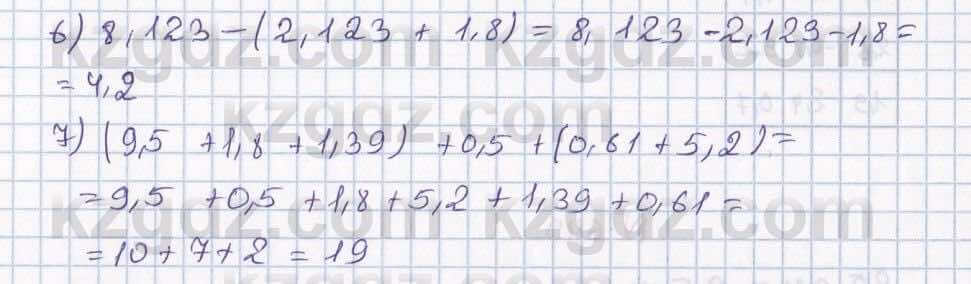 6) 8,123 - (2,123 + 1,8) = 8,123 - 2,123 - 1,8 =
= 4,2
7) (9,5 + 1,8 + 1,39) + 0,5 + (0,61 + 5,2) =
= 9,5 + 0,5 + 1,8 + 5,2 + 1,39 + 0,61 =
= 10 + 7 + 2 = 19